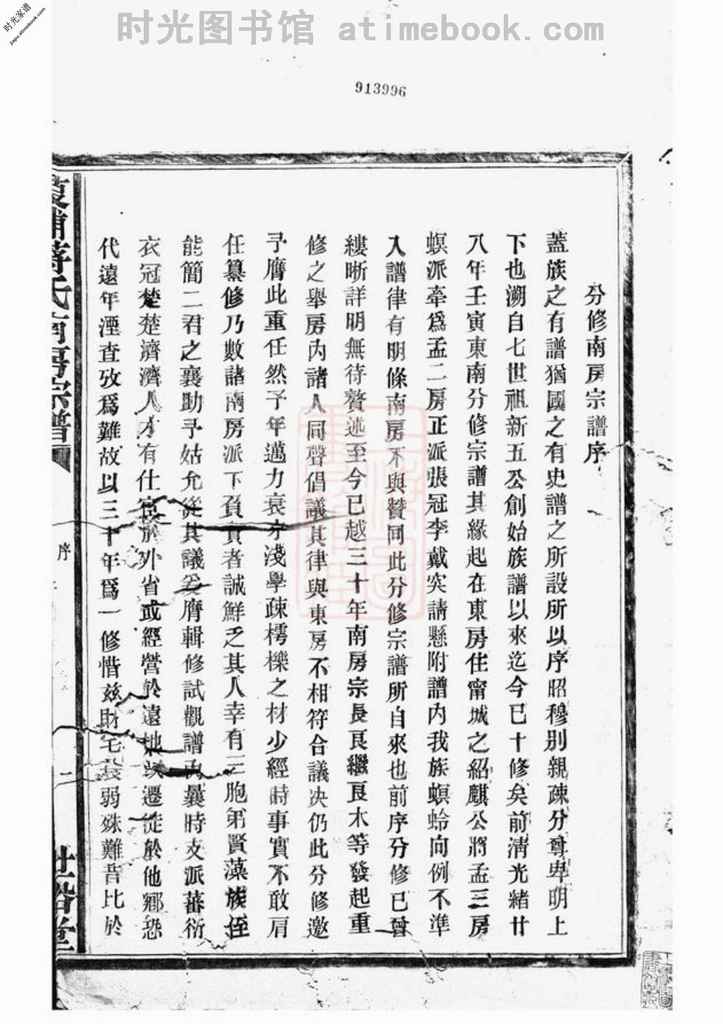 时光图书馆 atimebook.com
时光家谱
jiapu.atimebook.com
913996
分修南房宗譜序
蓋族之有譜猶國之有史譜之所設所以序昭穆別親疎分尊卑明上
下也溯自七世祖新五公創始族譜以來迄今已十修矣前淸光緒廿
八年壬寅東南分修宗譜其緣起在東房住甯城之紹麒公將孟三房
螟派牽爲孟二房正派張冠李戴突請懸附譜內我族螟蛉向例不準
入譜律有明條南房不與贊同此分修宗譜所自來也前序分修已曾
縷晰詳明無待贅述至今已越三十年南房宗長良繼良木等發起重
修之舉房內諸人同聲倡議其律與東房不相符合議決仍此分修邀
予膺此重任然予年邁力衰才淺學疎樗櫟之材少經時事實不敢肩
任纂修乃數諸南房派下負責者誠鮮乏其人幸有三胞弟賢藻族侄
能簡二君之襄助予姑允從其議爰膺輯修試觀譜內曩時支派蕃衍
衣冠楚楚濟濟人才有仕宦於外省或經營於遠地或遷徙於他鄉恐
代遠年湮查攷爲難故以三十年爲一修惜玆財宅衰弱殊難昔比於
蔣氏南房宗譜
序
一
世裕堂